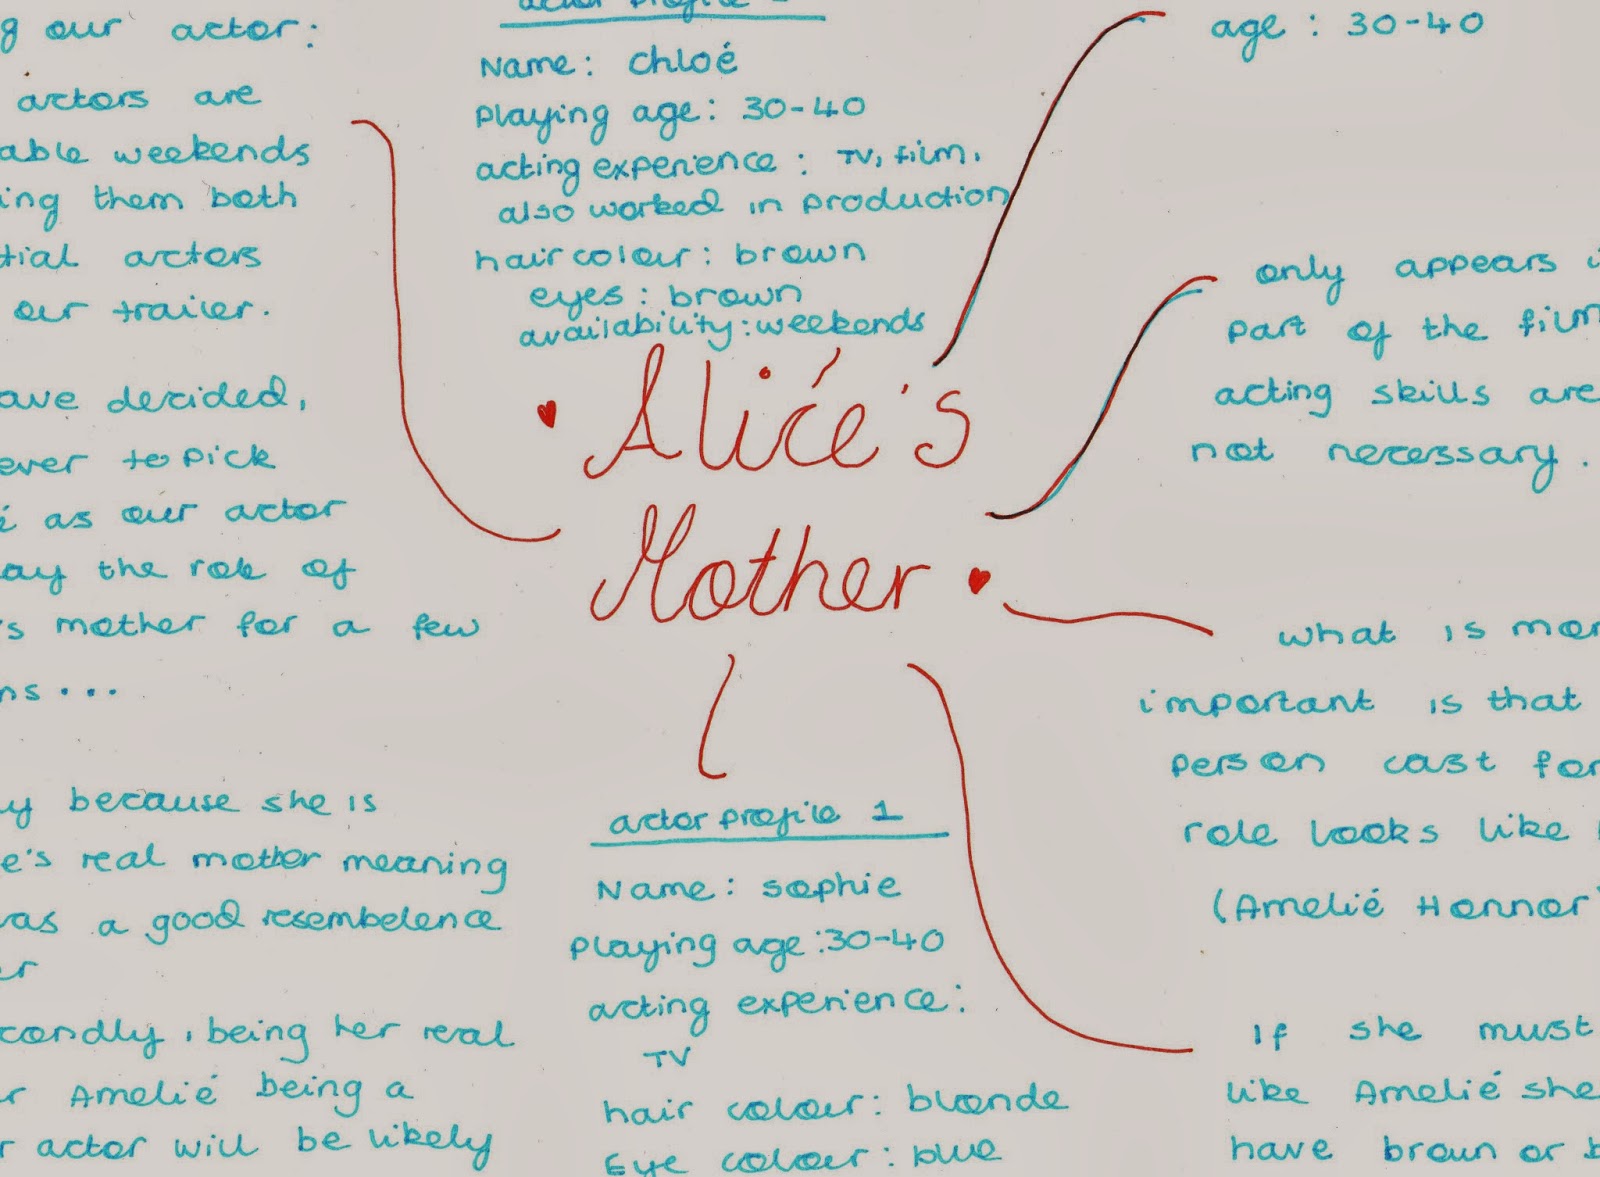 g our actor:
actors are
able weekends
ing them both
tial actors
our trailer.
ave decided,
ever to pick
é as our actor
ay the role of
's mother for a few
ns...
y because she is
e's real mother meaning
as a good resembelence
er
condly, being her real
r Amelié being a
r actor will be likely
actor profile
Name: Chloé
Playing age: 30-40
acting experience: TV, film,
also worked in production
hair colour: brown
eyes: brown
availability: weekends
Alice's
Mother
actor profile 1
Name: Sophie
Playing age: 30-40
acting experience:
TV
hair colour: blonde
Eye colour: blue
age: 30-40
only appears i
part of the film
acting skills are
not necessary.
what is mor
important is that
person cast for
role looks like
(Amelié Honnor)
If she must
like Amelié she
have brown or b